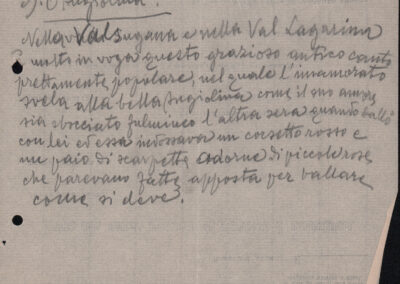 Angiolina.
Nella Valsugana e nella Val Lagarina
è molto in voga questo grazioso antico canto
prettamente popolare, nel quale l'innamorato
svela alla bella Angiolina come il suo amore
sia sbocciato fulmineo l'altra sera quando ballò
con lei ed essa indossava un corsetto rosso e
un paio di scarpette adorne di piccole rose
che parevano fatte apposta per ballare
come si deve.